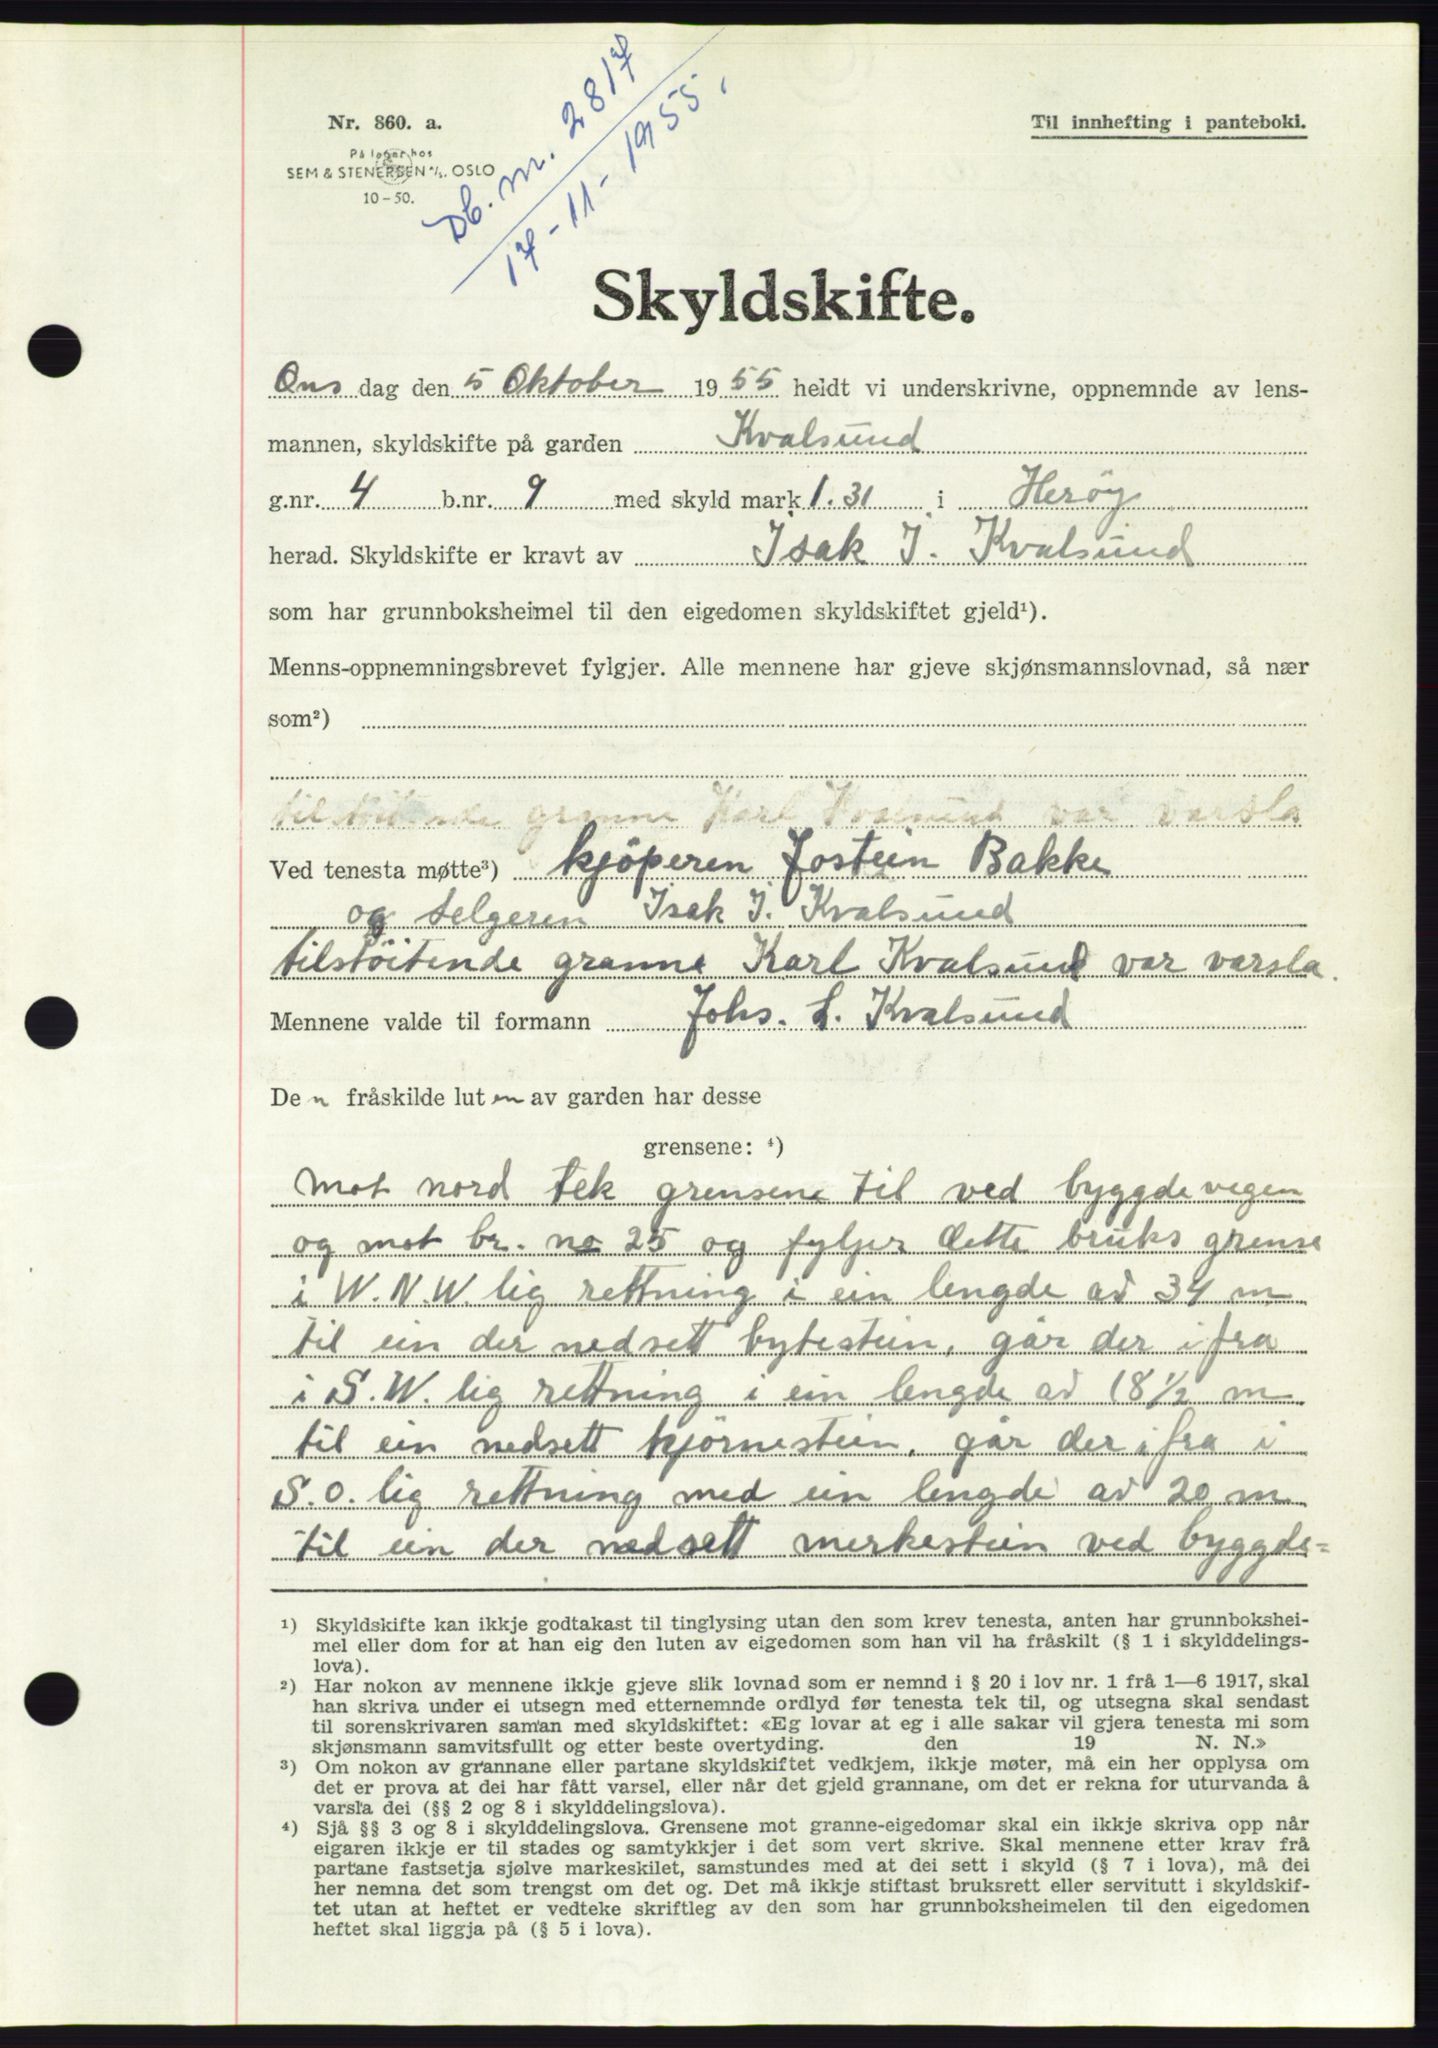 Db. nr. 2817
17-11-1955.
Nr. 860. a.
På lager hos
SEM & STENERSEN A/S. OSLO
10-50.
Til innhefting i panteboki.
Skyldskifte.
Ons dag den 5 Oktober 1955 heldt vi underskrivne, oppnemnde av lens-
mannen, skyldskifte på garden Kvalsund
g.nr. 4 b.nr. 9 med skyld mark 1.31 i Herøy
herad. Skyldskifte er kravt av Isak I. Kvalsund
som har grunnboksheimel til den eigedomen skyldskiftet gjeld¹).
Menns-oppnemningsbrevet fylgjer. Alle mennene har gjeve skjønsmannslovnad, så nær
som²)
granne Karl Kvalsund var varsla
Ved tenesta møtte³) kjöperen Jostein Bakke
og selgeren Isak I. Kvalsund
tilstöitende granne Karl Kvalsund var varsla.
Mennene valde til formann Johs. L. Kvalsund
De n fråskilde lut en av garden har desse
grensene: ⁴)
mot nord tek grensene til ved byggdevegen
og mot br. no 25 og fyljer dette bruks grense
i W.N.W. lig rettning i ein lengde av 34 m
til ein der nedsett bytestein, går der ifra
i S.W. lig rettning i ein lengde av 18½ m
til ein nedsett hjörnestein, går der ifra i
S.O. lig rettning med ein lengde av 20 m
til ein der nedsett merkestein ved byggde=
¹) Skyldskifte kan ikkje godtakast til tinglysing utan den som krev tenesta, anten har grunnbokshei-
mel eller dom for at han eig den luten av eigedomen som han vil ha fråskilt (§ 1 i skylddelings-
lova).
²) Har nokon av mennene ikkje gjeve slik lovnad som er nemnd i § 20 i lov nr. 1 frå 1—6 1917, skal
han skriva under ei utsegn med etternemnde ordlyd før tenesta tek til, og utsegna skal sendast
til sorenskrivaren saman med skyldskiftet: «Eg lovar at eg i alle sakar vil gjera tenesta mi som
skjønsmann samvitsfullt og etter beste overtyding. den 19 N. N.»
³) Om nokon av grannane eller partane skyldskiftet vedkjem, ikkje møter, må ein her opplysa om
det er prova at dei har fått varsel, eller når det gjeld grannane, om det er rekna for uturvanda å
varsla dei (§§ 2 og 8 i skylddelingslova).
⁴) Sjå §§ 3 og 8 i skylddelingslova. Grensene mot granne-eigedomar skal ein ikkje skriva opp når
eigaren ikkje er til stades og samtykkjer i det som vert skrive. Skal mennene etter krav frå
partane fastsetja sjølve markeskilet, samstundes med at dei sett i skyld (§ 7 i lova), må dei
her nemna det som trengst om det og. Det må ikkje stiftast bruksrett eller servitutt i skyldskif-
tet utan at heftet er vedteke skriftleg av den som har grunnboksheimelen til den eigedomen
heftet skal liggja på (§ 5 i lova).